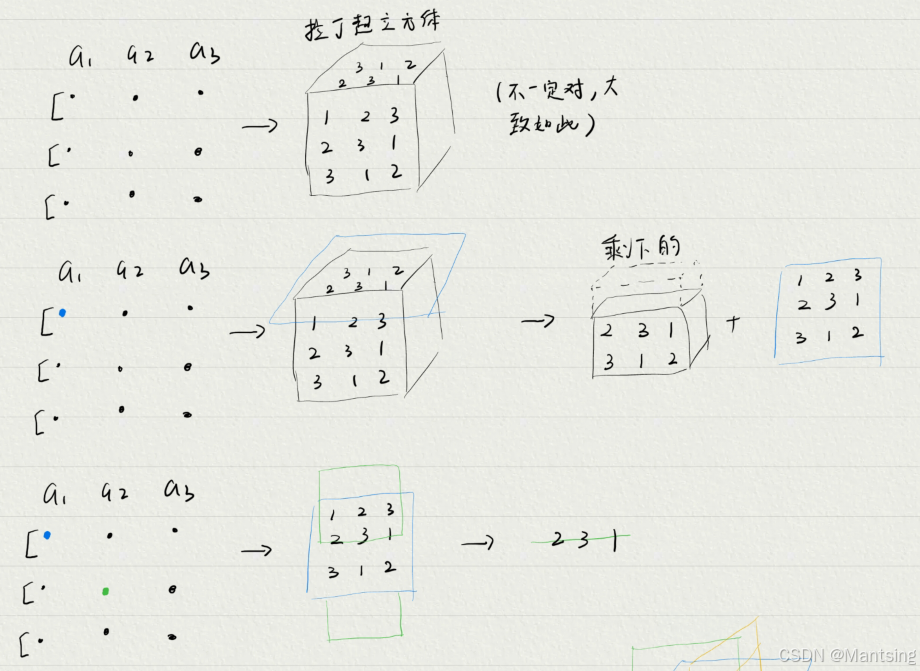 拉丁超立方体
a1 a2 a3
3 1 2
2 3 1
[
→
1 2 3
2 3 1
3 1 2
(不一定对,大
致如此)
[
[
剩下的
a1 a2 a3
3 1 2
2 3 1
[
→
1 2 3
2 3 1
3 1 2
→
2 3 1
3 1 2
+
1 2 3
2 3 1
3 1 2
[
[
a1 a2 a3
[
→
1 2 3
2 3 1
3 1 2
→
2 3 1
[
[
CSDN @Mantsing